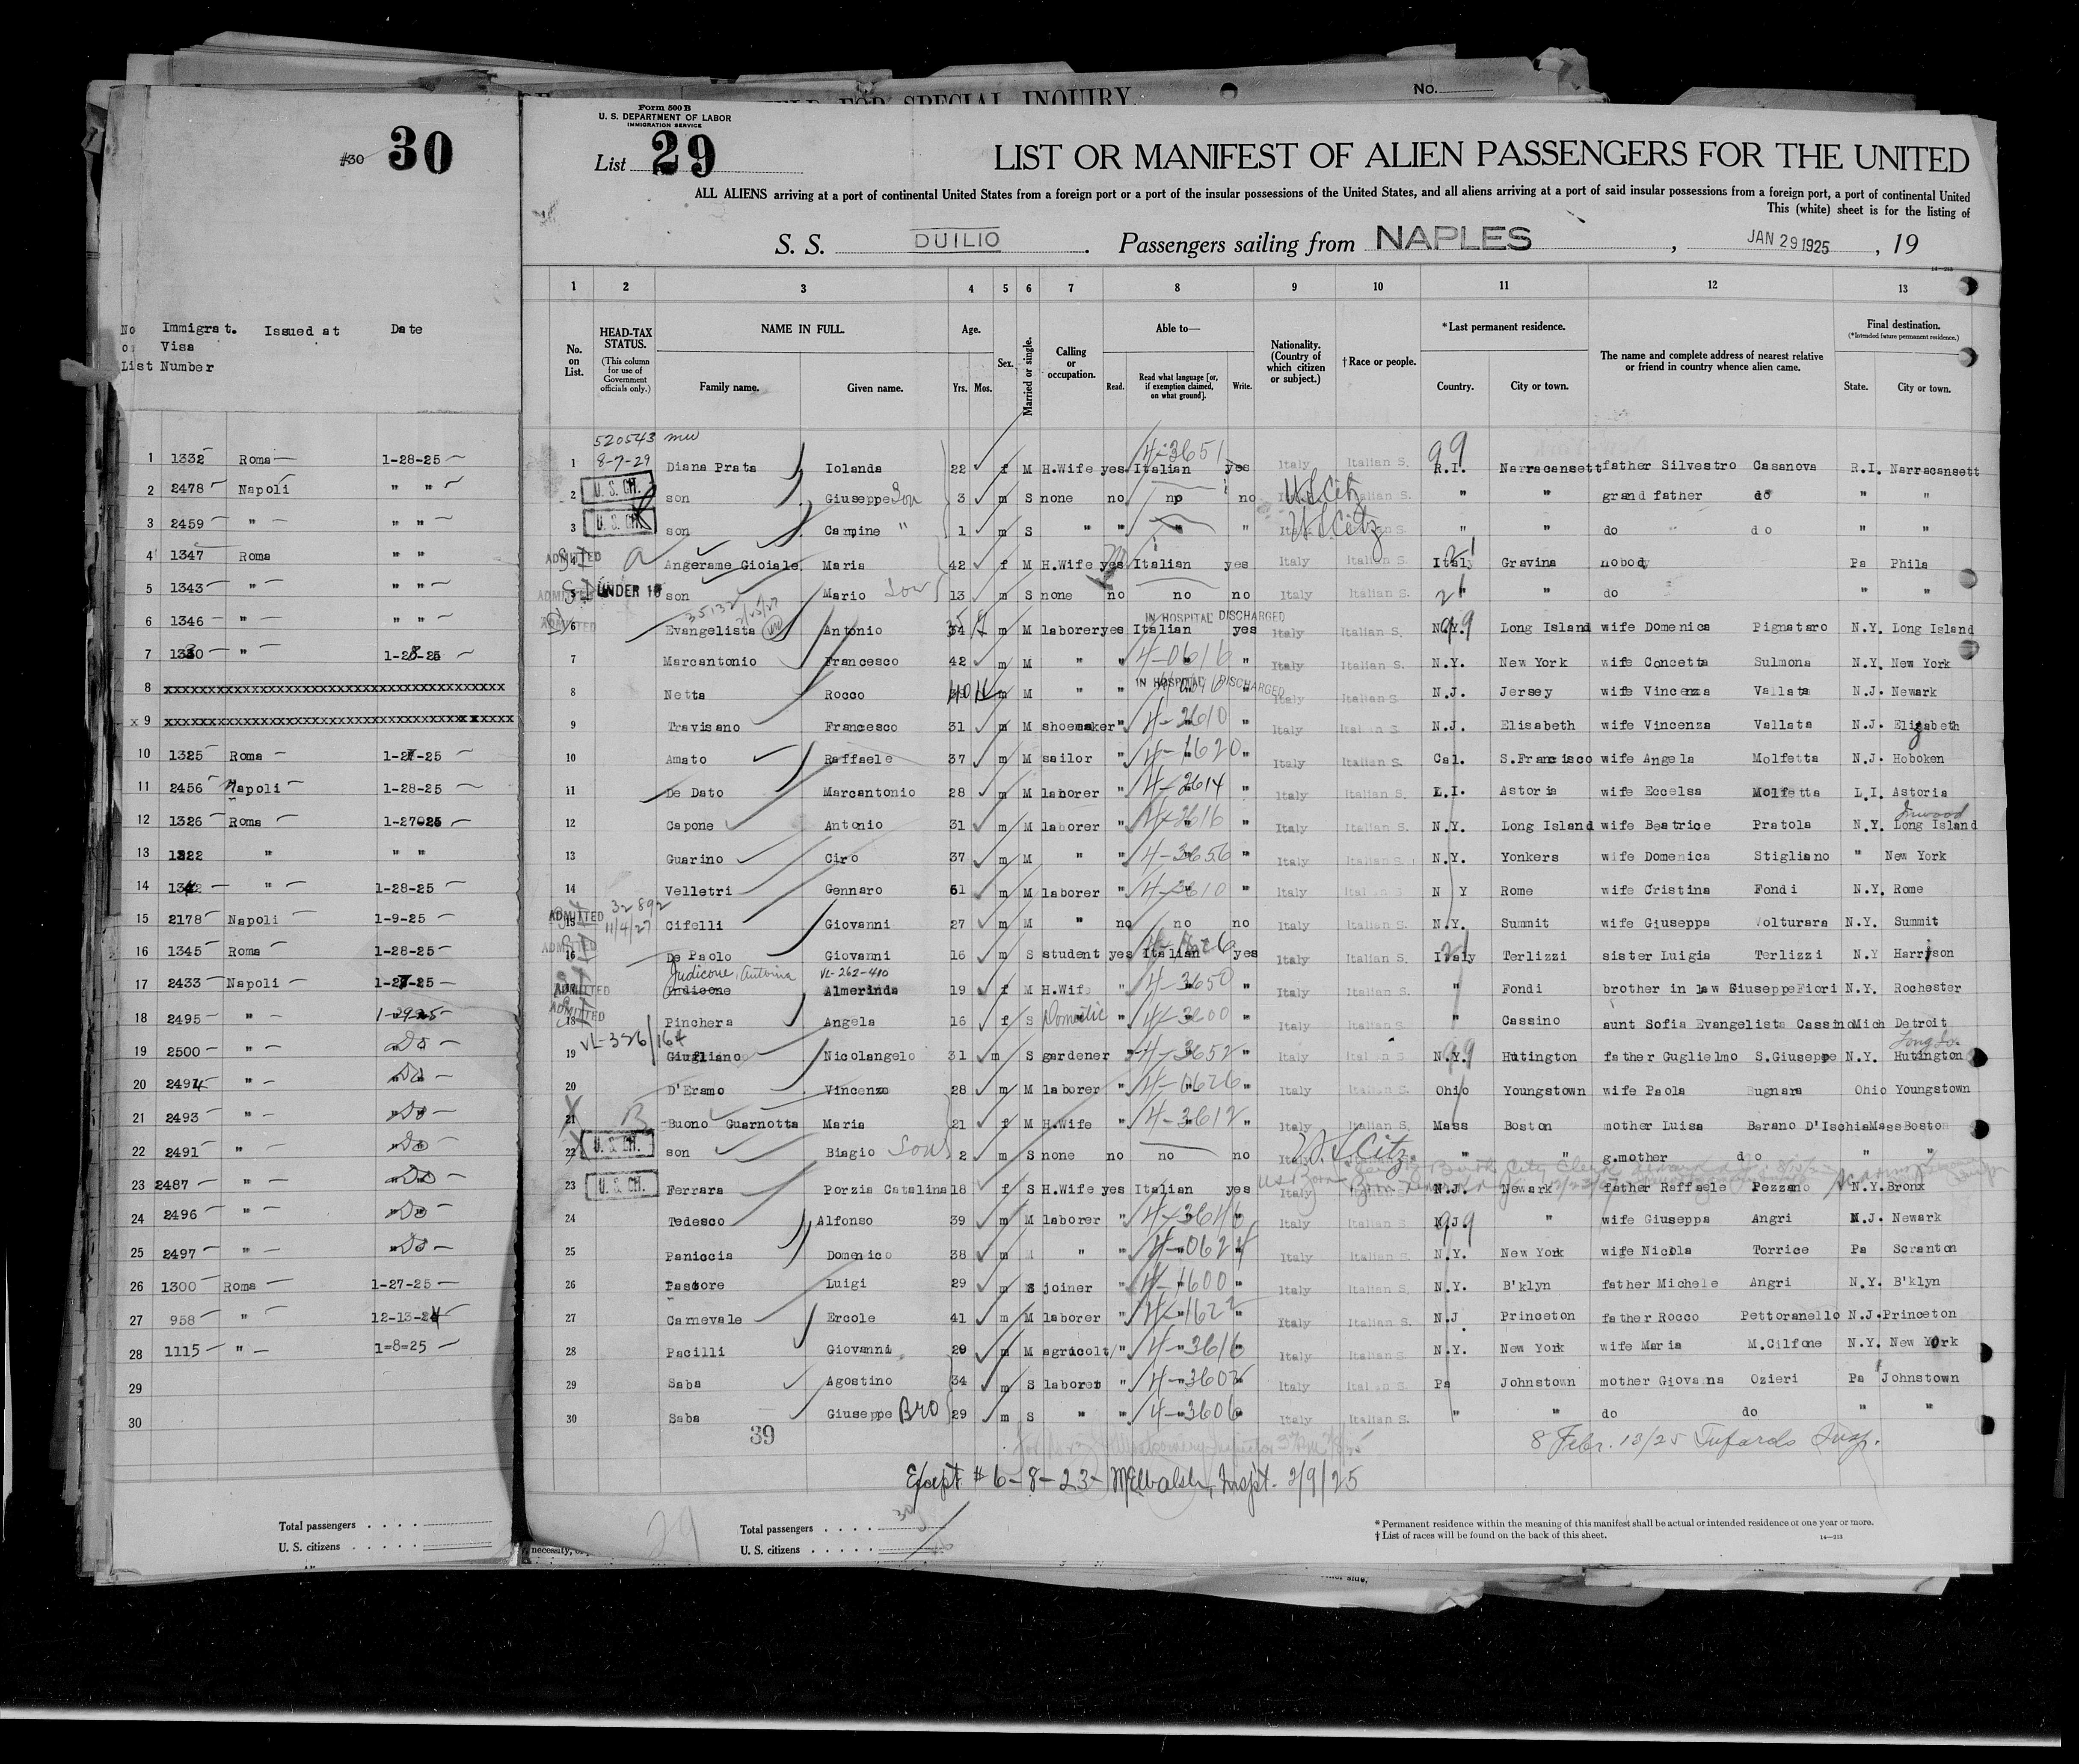 HELD FOR SPECIAL INQUIRY.
No.
#30 30
No on List
Immigrat. Visa Number
Issued at
Date
1 1332 Roma 1-28-25
2 2478 Napoli " "
3 2459 " " "
4 1347 Roma " "
5 1343 " " "
6 1346 " " "
7 1330 " 1-28-25
8 xxxxxxxxxxxxxxxxxxxxxxxxxxxxxxxxxxxxxxxxx
x 9 xxxxxxxxxxxxxxxxxxxxxxxxxxxxxxxxxxxxxxxxx
10 1325 Roma 1-27-25
11 2456 Napoli 1-28-25
12 1326 Roma 1-27-25
13 1322 " " "
14 1342 " 1-28-25
15 2178 Napoli 1-9-25
16 1345 Roma 1-28-25
17 2433 Napoli 1-27-25
18 2495 " 1-29-25
19 2500 " Do
20 2494 " Do
21 2493 " Do
22 2491 " Do
23 2487 " Do
24 2496 " Do
25 2497 " Do
26 1300 Roma 1-27-25
27 958 " 12-13-24
28 1115 " 1=8=25
29
30
Total passengers
U. S. citizens
Form 500 B
U. S. DEPARTMENT OF LABOR
IMMIGRATION SERVICE
List 29
LIST OR MANIFEST OF ALIEN PASSENGERS FOR THE UNITED
ALL ALIENS arriving at a port of continental United States from a foreign port or a port of the insular possessions of the United States, and all aliens arriving at a port of said insular possessions from a foreign port, a port of continental United
This (white) sheet is for the listing of
S. S. DUILIO. Passengers sailing from NAPLES, JAN 29 1925, 19
14—213
1 2 3 4 5 6 7 8 9 10 11 12 13
No. on List.
HEAD-TAX STATUS. (This column for use of Government officials only.)
NAME IN FULL. Family name. Given name.
Age. Yrs. Mos.
Sex.
Married or single.
Calling or occupation.
Able to— Read. Read what language [or, if exemption claimed, on what ground]. Write.
Nationality. (Country of which citizen or subject.)
† Race or people.
* Last permanent residence. Country. City or town.
The name and complete address of nearest relative or friend in country whence alien came.
Final destination. (*Intended future permanent residence.) State. City or town.
520543
1 8-7-29 Diana Prata Iolanda 22 f M H.Wife yes Italian 4-3651 yes Italy Italian S. 99 R.I. Narracansett father Silvestro Casanova R.I. Narracansett
2 U. S. CH. son Giuseppe Son 3 m S none no no no Italy U.S. Citz Italian S. " " grand father do " "
3 U. S. CH. son Carmine " 1 m S " " " " Italy U.S. Citz Italian S. " " do do " "
4 ADMITTED Angerame Gioiale Maria 42 f M H.Wife yes Italian yes Italy Italian S. Italy Gravina nobody Pa Phila
5 ADMITTED UNDER 16 son Mario Son 13 m S none no no no Italy Italian S. " " do " "
IN HOSPITAL DISCHARGED
6 ADMITTED Evangelista Antonio 34 m M laborer yes Italian yes Italy Italian S. N.Y. Long Island wife Domenica Pignataro N.Y. Long Island
7 Marcantonio Francesco 42 m M " " 4-0616 " Italy Italian S. N.Y. New York wife Concetta Sulmona N.Y. New York
IN HOSPITAL DISCHARGED
8 Netta Rocco 40 m M " " " Italy Italian S. N.J. Jersey wife Vincenza Vallata N.J. Newark
9 Travisano Francesco 31 m M shoemaker " 4-2610 " Italy Italian S N.J. Elisabeth wife Vincenza Vallata N.J. Elizabeth
10 Amato Raffaele 37 m M sailor " 4-1620 " Italy Italian S. Cal. S.Francisco wife Angela Molfetta N.J. Hoboken
11 De Dato Marcantonio 28 m M laborer " 4-2614 " Italy Italian S. L.I. Astoria wife Eccelsa Molfetta L.I. Astoria
Inwood
12 Capone Antonio 31 m M laborer " 4-2616 " Italy Italian S. N.Y. Long Island wife Beatrice Pratola N.Y. Long Island
13 Guarino Ciro 37 m M " " 4-3656 " Italy Italian S. N.Y. Yonkers wife Domenica Stigliano " New York
14 Velletri Gennaro 51 m M laborer " 4-3610 " Italy Italian S N Y Rome wife Cristina Fondi N.Y. Rome
32892
15 ADMITTED 11/4/27 Cifelli Giovanni 27 m M " no no no Italy Italian S. N.Y. Summit wife Giuseppa Volturara N.Y. Summit
16 ADMITTED De Paolo Giovanni 16 m S student yes Italian yes Italy Italian S. Italy Terlizzi sister Luigia Terlizzi N.Y Harrison
Judicone, Antonina VL-262-410
17 ADMITTED Almerinda 19 f M H.Wife " 4-3650 " Italy Italian S. " Fondi brother in law Giuseppe Fiori N.Y. Rochester
18 ADMITTED Pinchera Angela 16 f S Domestic " 4-3600 " Italy Italian S. " Cassino aunt Sofia Evangelista Cassino Mich Detroit
VL-326/164
19 Giugliano Nicolangelo 31 m S gardener " 4-3652 " Italy Italian S N.Y. Hutington father Guglielmo S.Giuseppe N.Y. Hutington
20 D'Eramo Vincenzo 28 m M laborer " 4-0626 " Italy Italian S. Ohio Youngstown wife Paola Bugnara Ohio Youngstown
21 Buono Guarnotta Maria 21 f M H.Wife " 4-3612 " Italy Italian S. Mass Boston mother Luisa Barano D'Ischia Mass Boston
22 U. S. CH. son Biagio Son 2 m S none no no no Italy U.S. Citz. " " g.mother do " "
23 U. S. CH. Ferrara Porzia Catalina 18 f S H.Wife yes Italian yes Italy US Born N.J. Newark father Raffaele Pezzano N.Y. Bronx
24 Tedesco Alfonso 39 m M laborer " 4-3646 " Italy Italian S. N.J. " wife Giuseppa Angri N.J. Newark
25 Paniccia Domenico 38 m M " " 4-0624 Italy Italian S. N.Y. New York wife Nicola Torrice Pa Scranton
26 Pastore Luigi 29 m S joiner " 4-1600 " Italy Italian S. N.Y. B'klyn father Michele Angri N.Y. B'klyn
27 Carnevale Ercole 41 m M laborer " 4-1622 " Italy Italian S. N.J Princeton father Rocco Pettoranello N.J. Princeton
28 Pacilli Giovanni 29 m M agricolt " 4-3616 Italy Italian S. N.Y. New York wife Maria M.Cilfone N.Y. New York
29 Saba Agostino 34 m S laborer " 4-3602 Italy Italian S. Pa Johnstown mother Giovanna Ozieri Pa Johnstown
30 Saba Giuseppe Bro 29 m S " " 4-3606 Italy Italian S. " " do do " "
39
8 Febr. 13/25 Insp.
Except # 6-8-23- McElwalsh, Inspt. 2/9/25
29
Total passengers 30
U. S. citizens
* Permanent residence within the meaning of this manifest shall be actual or intended residence of one year or more.
† List of races will be found on the back of this sheet.
14—213